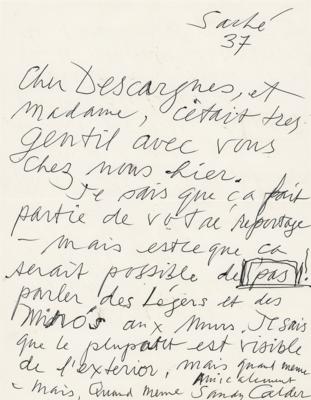 Saché
37
Cher Descargnes, et
madame, c'était tres
gentil avec vous
chez nous hier.
Je sais que ça fait
partie de votre reportage
– mais estce que ca
serait possible de pas!
parler des Légers et des
Mirós aux murs. Je sais
que le plupart est visible
de l'exterior, mais quand meme
Amicalement
– mais, Quand meme Sandy Calder